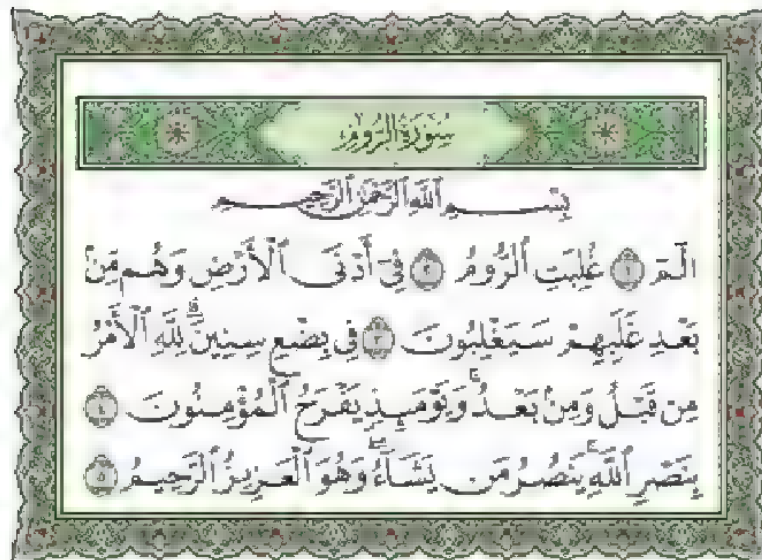 سُورَةُ الرُّومِ
بِسْمِ ٱللَّهِ ٱلرَّحْمَٰنِ ٱلرَّحِيمِ
الٓمٓ ۝١ غُلِبَتِ ٱلرُّومُ ۝٢ فِىٓ أَدْنَى ٱلْأَرْضِ وَهُم مِّنۢ
بَعْدِ غَلَبِهِمْ سَيَغْلِبُونَ ۝٣ فِى بِضْعِ سِنِينَ ۗ لِلَّهِ ٱلْأَمْرُ
مِن قَبْلُ وَمِنۢ بَعْدُ ۚ وَيَوْمَئِذٍ يَفْرَحُ ٱلْمُؤْمِنُونَ ۝٤
بِنَصْرِ ٱللَّهِ ۚ يَنصُرُ مَن يَشَآءُ ۖ وَهُوَ ٱلْعَزِيزُ ٱلرَّحِيمُ ۝٥